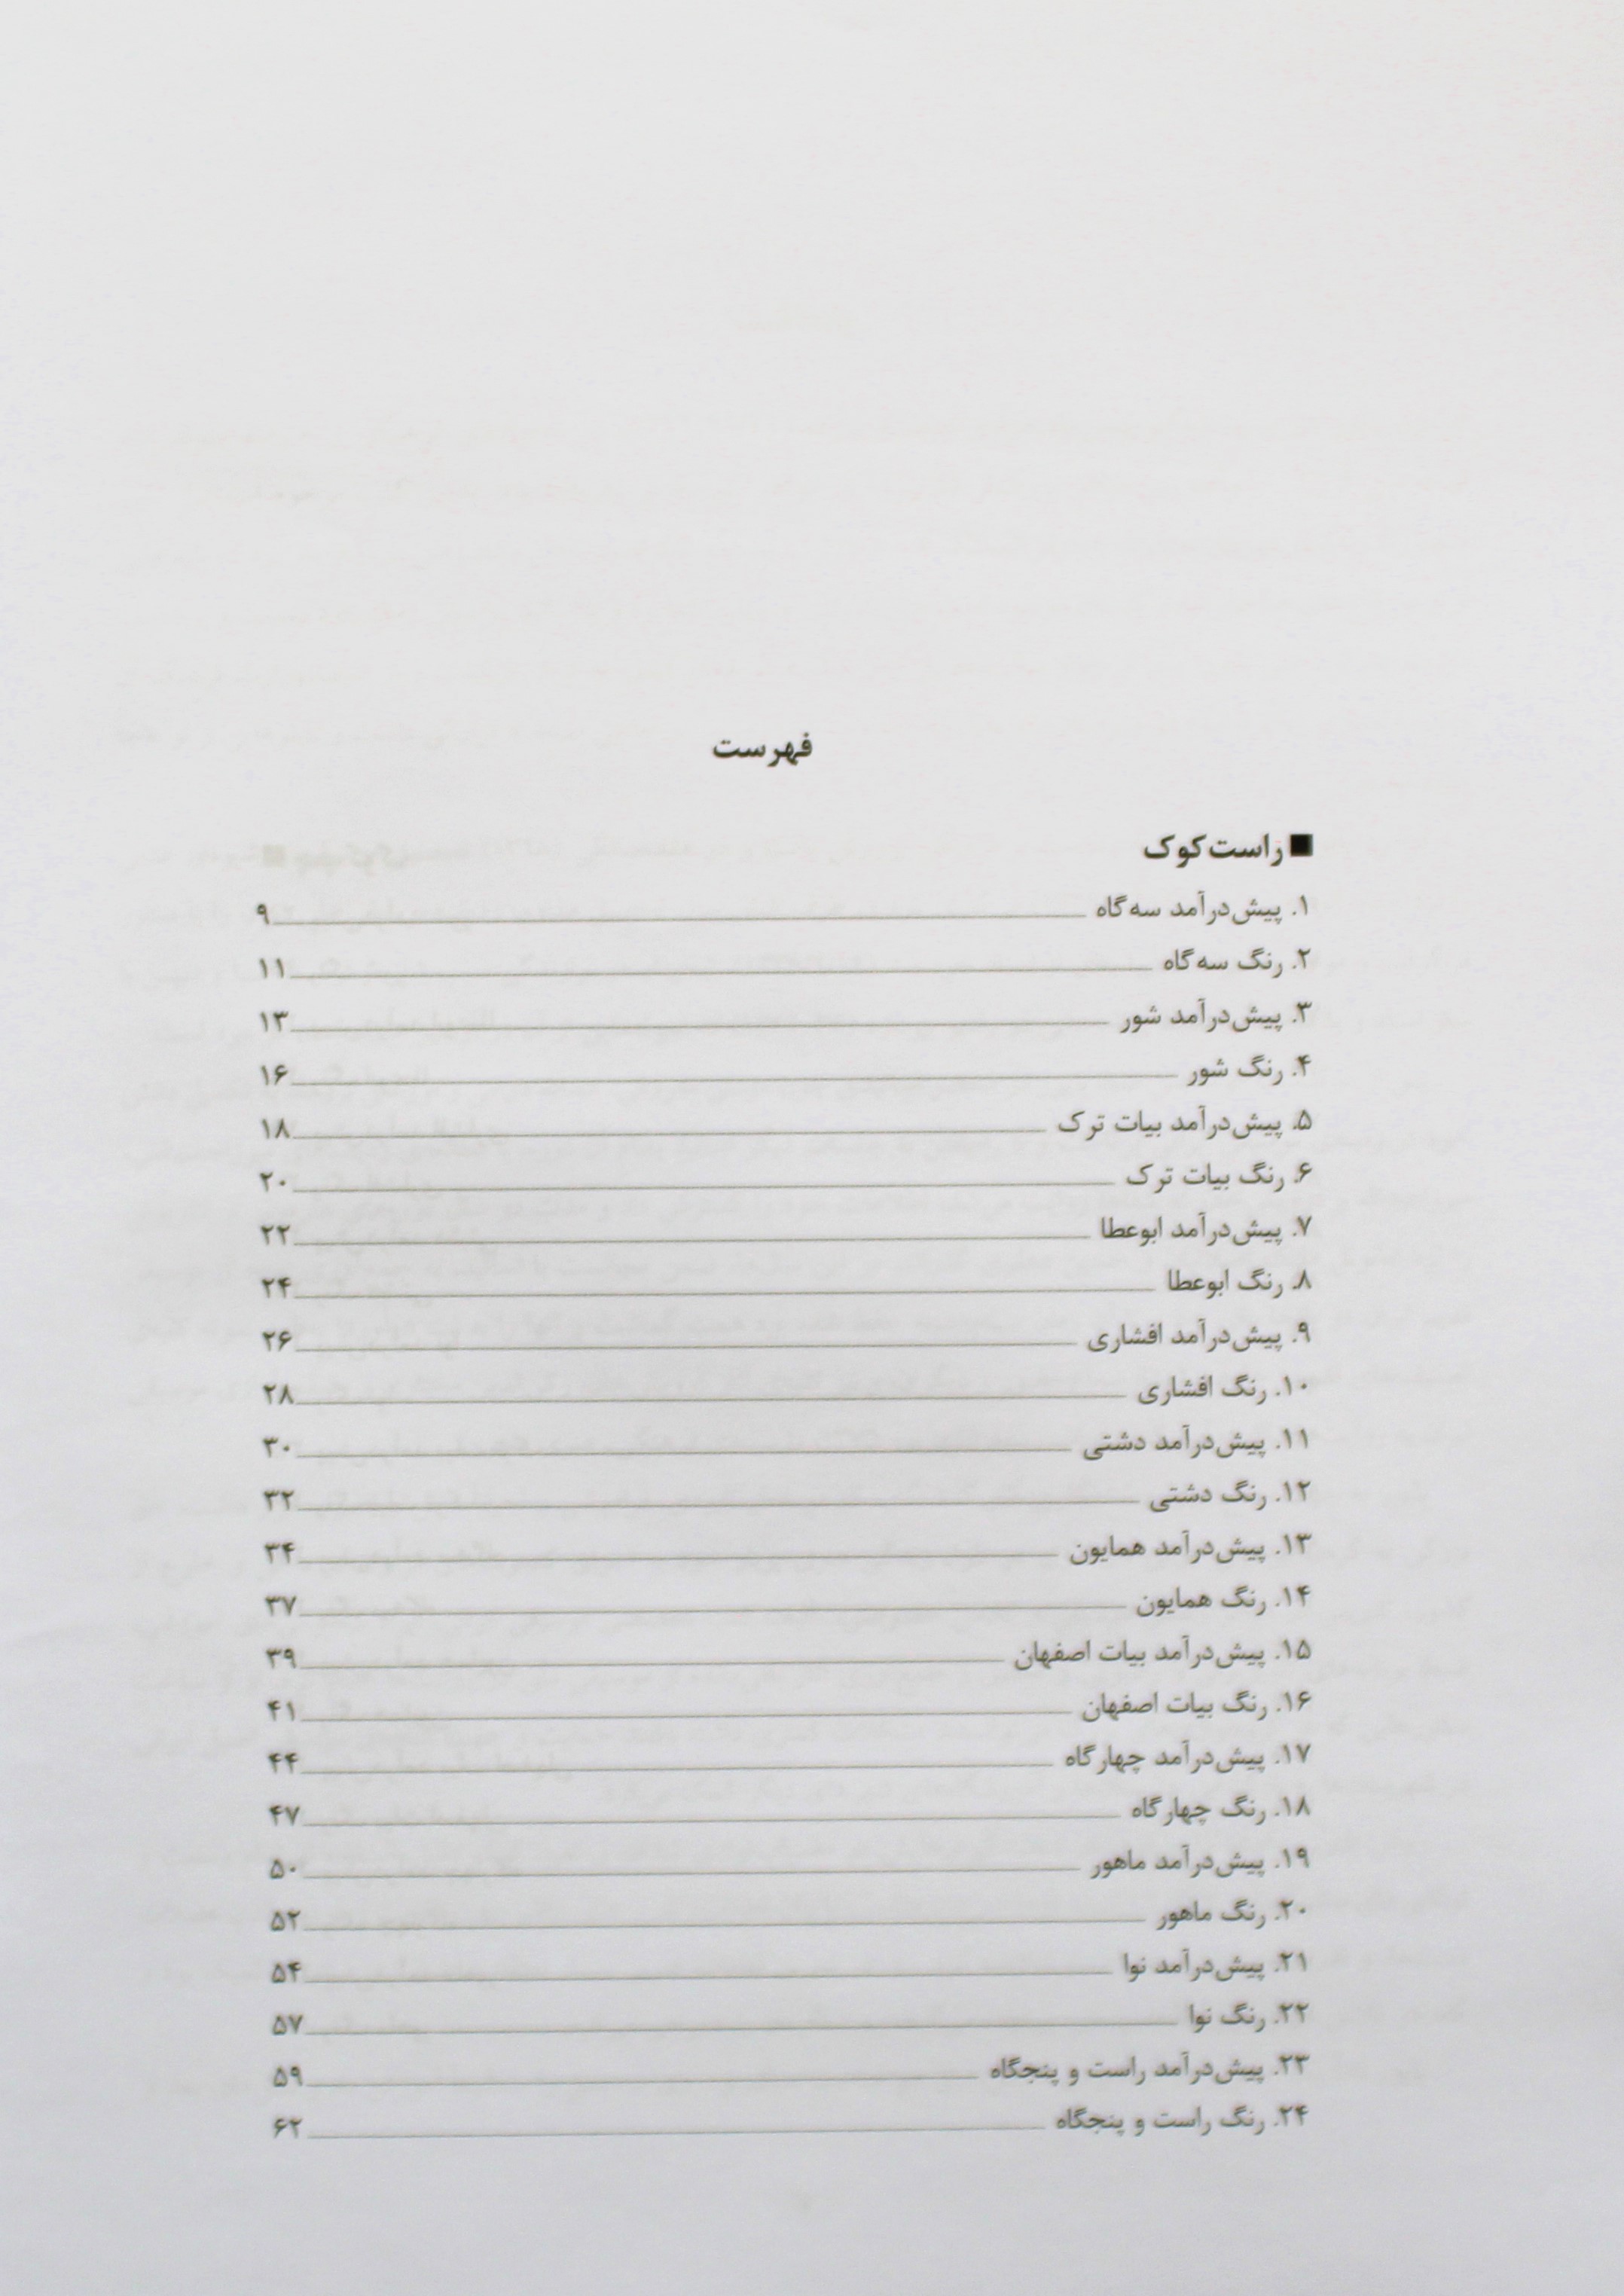 فهرست
■ راست‌کوک
۱. پیش‌درآمد سه‌گاه ۹
۲. رنگ سه‌گاه ۱۱
۳. پیش‌درآمد شور ۱۳
۴. رنگ شور ۱۶
۵. پیش‌درآمد بیات ترک ۱۸
۶. رنگ بیات ترک ۲۰
۷. پیش‌درآمد ابوعطا ۲۲
۸. رنگ ابوعطا ۲۴
۹. پیش‌درآمد افشاری ۲۶
۱۰. رنگ افشاری ۲۸
۱۱. پیش‌درآمد دشتی ۳۰
۱۲. رنگ دشتی ۳۲
۱۳. پیش‌درآمد همایون ۳۴
۱۴. رنگ همایون ۳۷
۱۵. پیش‌درآمد بیات اصفهان ۳۹
۱۶. رنگ بیات اصفهان ۴۱
۱۷. پیش‌درآمد چهارگاه ۴۴
۱۸. رنگ چهارگاه ۴۷
۱۹. پیش‌درآمد ماهور ۵۰
۲۰. رنگ ماهور ۵۲
۲۱. پیش‌درآمد نوا ۵۴
۲۲. رنگ نوا ۵۷
۲۳. پیش‌درآمد راست و پنجگاه ۵۹
۲۴. رنگ راست و پنجگاه ۶۲